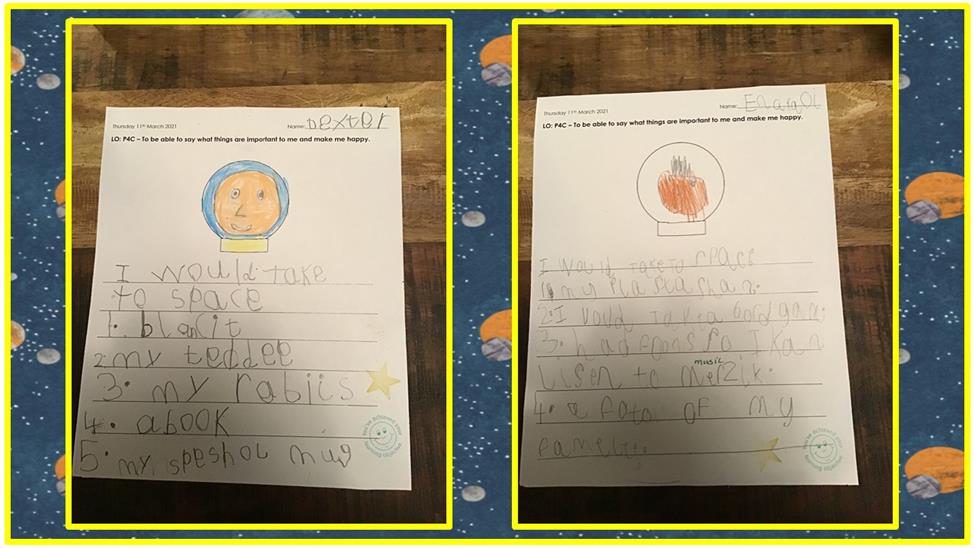 Thursday 11th March 2021
Name: Dexter
LO: P4C – To be able to say what things are important to me and make me happy.
I would take
to space
1. blancit
2. my teddee
3. my rabiis
4. abook
5. my speshol mug
You've achieved your learning objective
Thursday 11th March 2021
Name:
LO: P4C – To be able to say what things are important to me and make me happy.
I would take to space
1 my
2. I would take a bord gam.
3. hadfoons so I kan
lisen to merzik.
music
4. a foto of my
famely.
You've achieved your learning objective